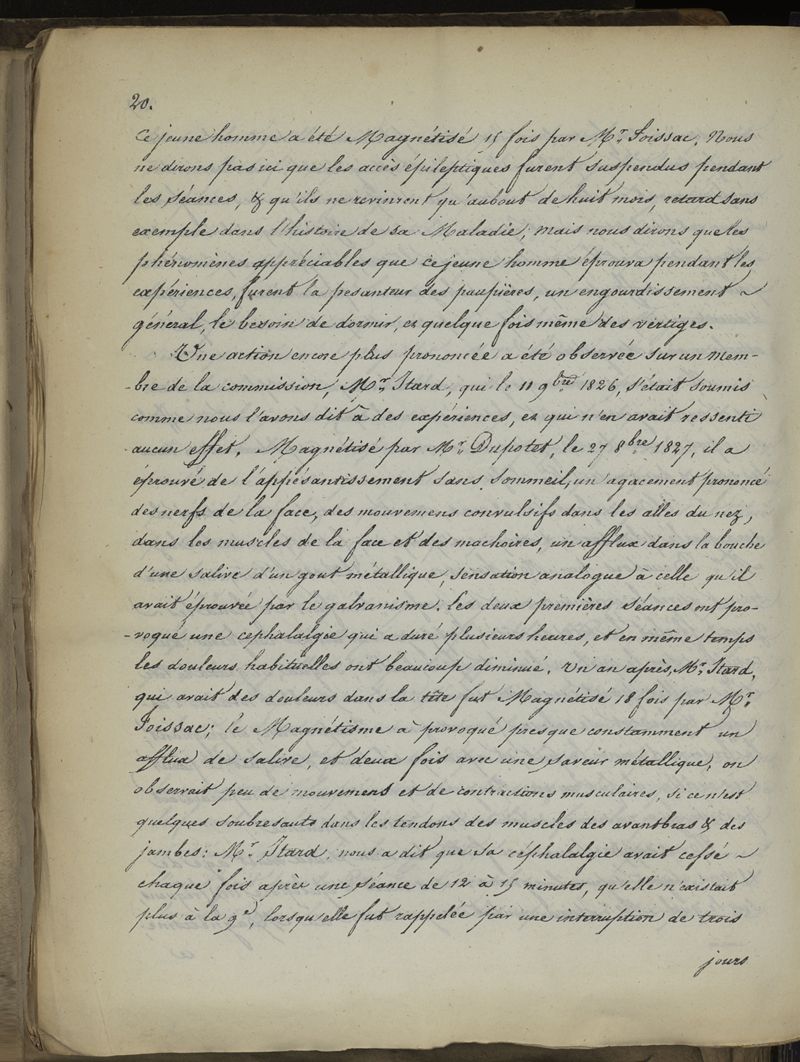 20.
Ce jeune homme a été Magnétisé 15 fois par Mr. Foissac. Nous
ne dirons pas ici que les accès épileptiques furent suspendus pendant
les séances, & qu'ils ne revinrent qu'aubout de huit mois, retard sans
exemple dans l'histoire de sa Maladie; mais nous dirons que les
phénomènes appréciables que ce jeune homme éprouva pendant les
expériences, furent la pesanteur des paupières, un engourdissement ~
général, le besoin de dormir, et quelque fois même des vertiges.
Une action encore plus prononcée a été observée sur un mem-
-bre de la commission, Mr. Itard, qui le 11 9bre 1826, s'était soumis
comme nous l'avons dit à des expériences, et qui n'en avait ressenti
aucun effet. Magnétisé par Mr. Dupotet, le 27 8bre 1827, il a
éprouvé de l'appésantissement sans sommeil, un agacement prononcé
des nerfs de la face, des mouvemens convulsifs dans les ailes du nez,
dans les muscles de la face et des machoires, un afflux dans la bouche
d'une salive d'un gout métallique, sensation analogue à celle qu'il
avait éprouvée par le galvanisme. les deux premières séances ont pro-
-voqué une cephalalgie qui a duré plusieurs heures, et en même temps
les douleurs habituelles ont beaucoup diminué. Un an après, Mr. Itard,
qui avait des douleurs dans la tête fut Magnétisé 18 fois par Mr.
Foissac; le Magnétisme a provoqué presque constamment un
afflux de salive, et deux fois avec une saveur métallique, on
observait peu de mouvement et de contractions musculaires, si ce n'est
quelques soubresauts dans les tendons des muscles des avantbras & des
jambes: Mr. Itard, nous a dit que sa céphalalgie avait cessé ~
chaque fois après une séance de 12 à 15 minutes, qu'elle n'existait
plus à la 9e, lorsqu'elle fut rappelée par une interruption de trois
jours